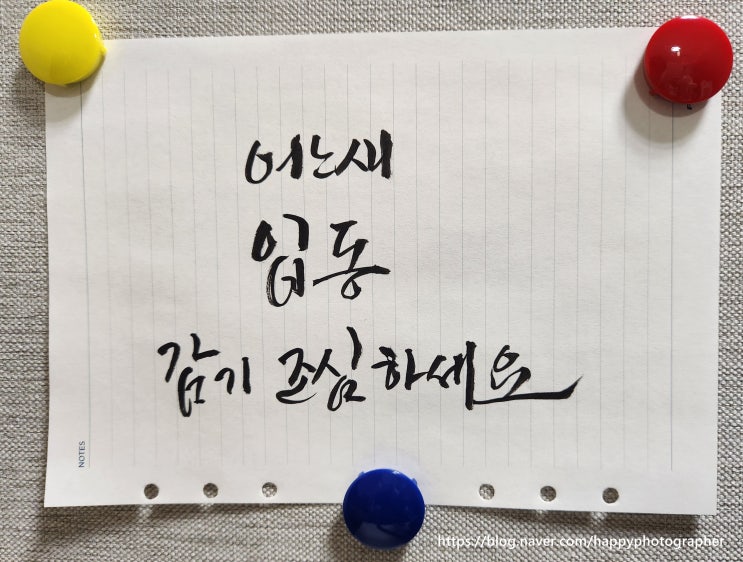 어느새
입동
감기 조심하세요
NOTES
https://blog.naver.com/happyphotographer